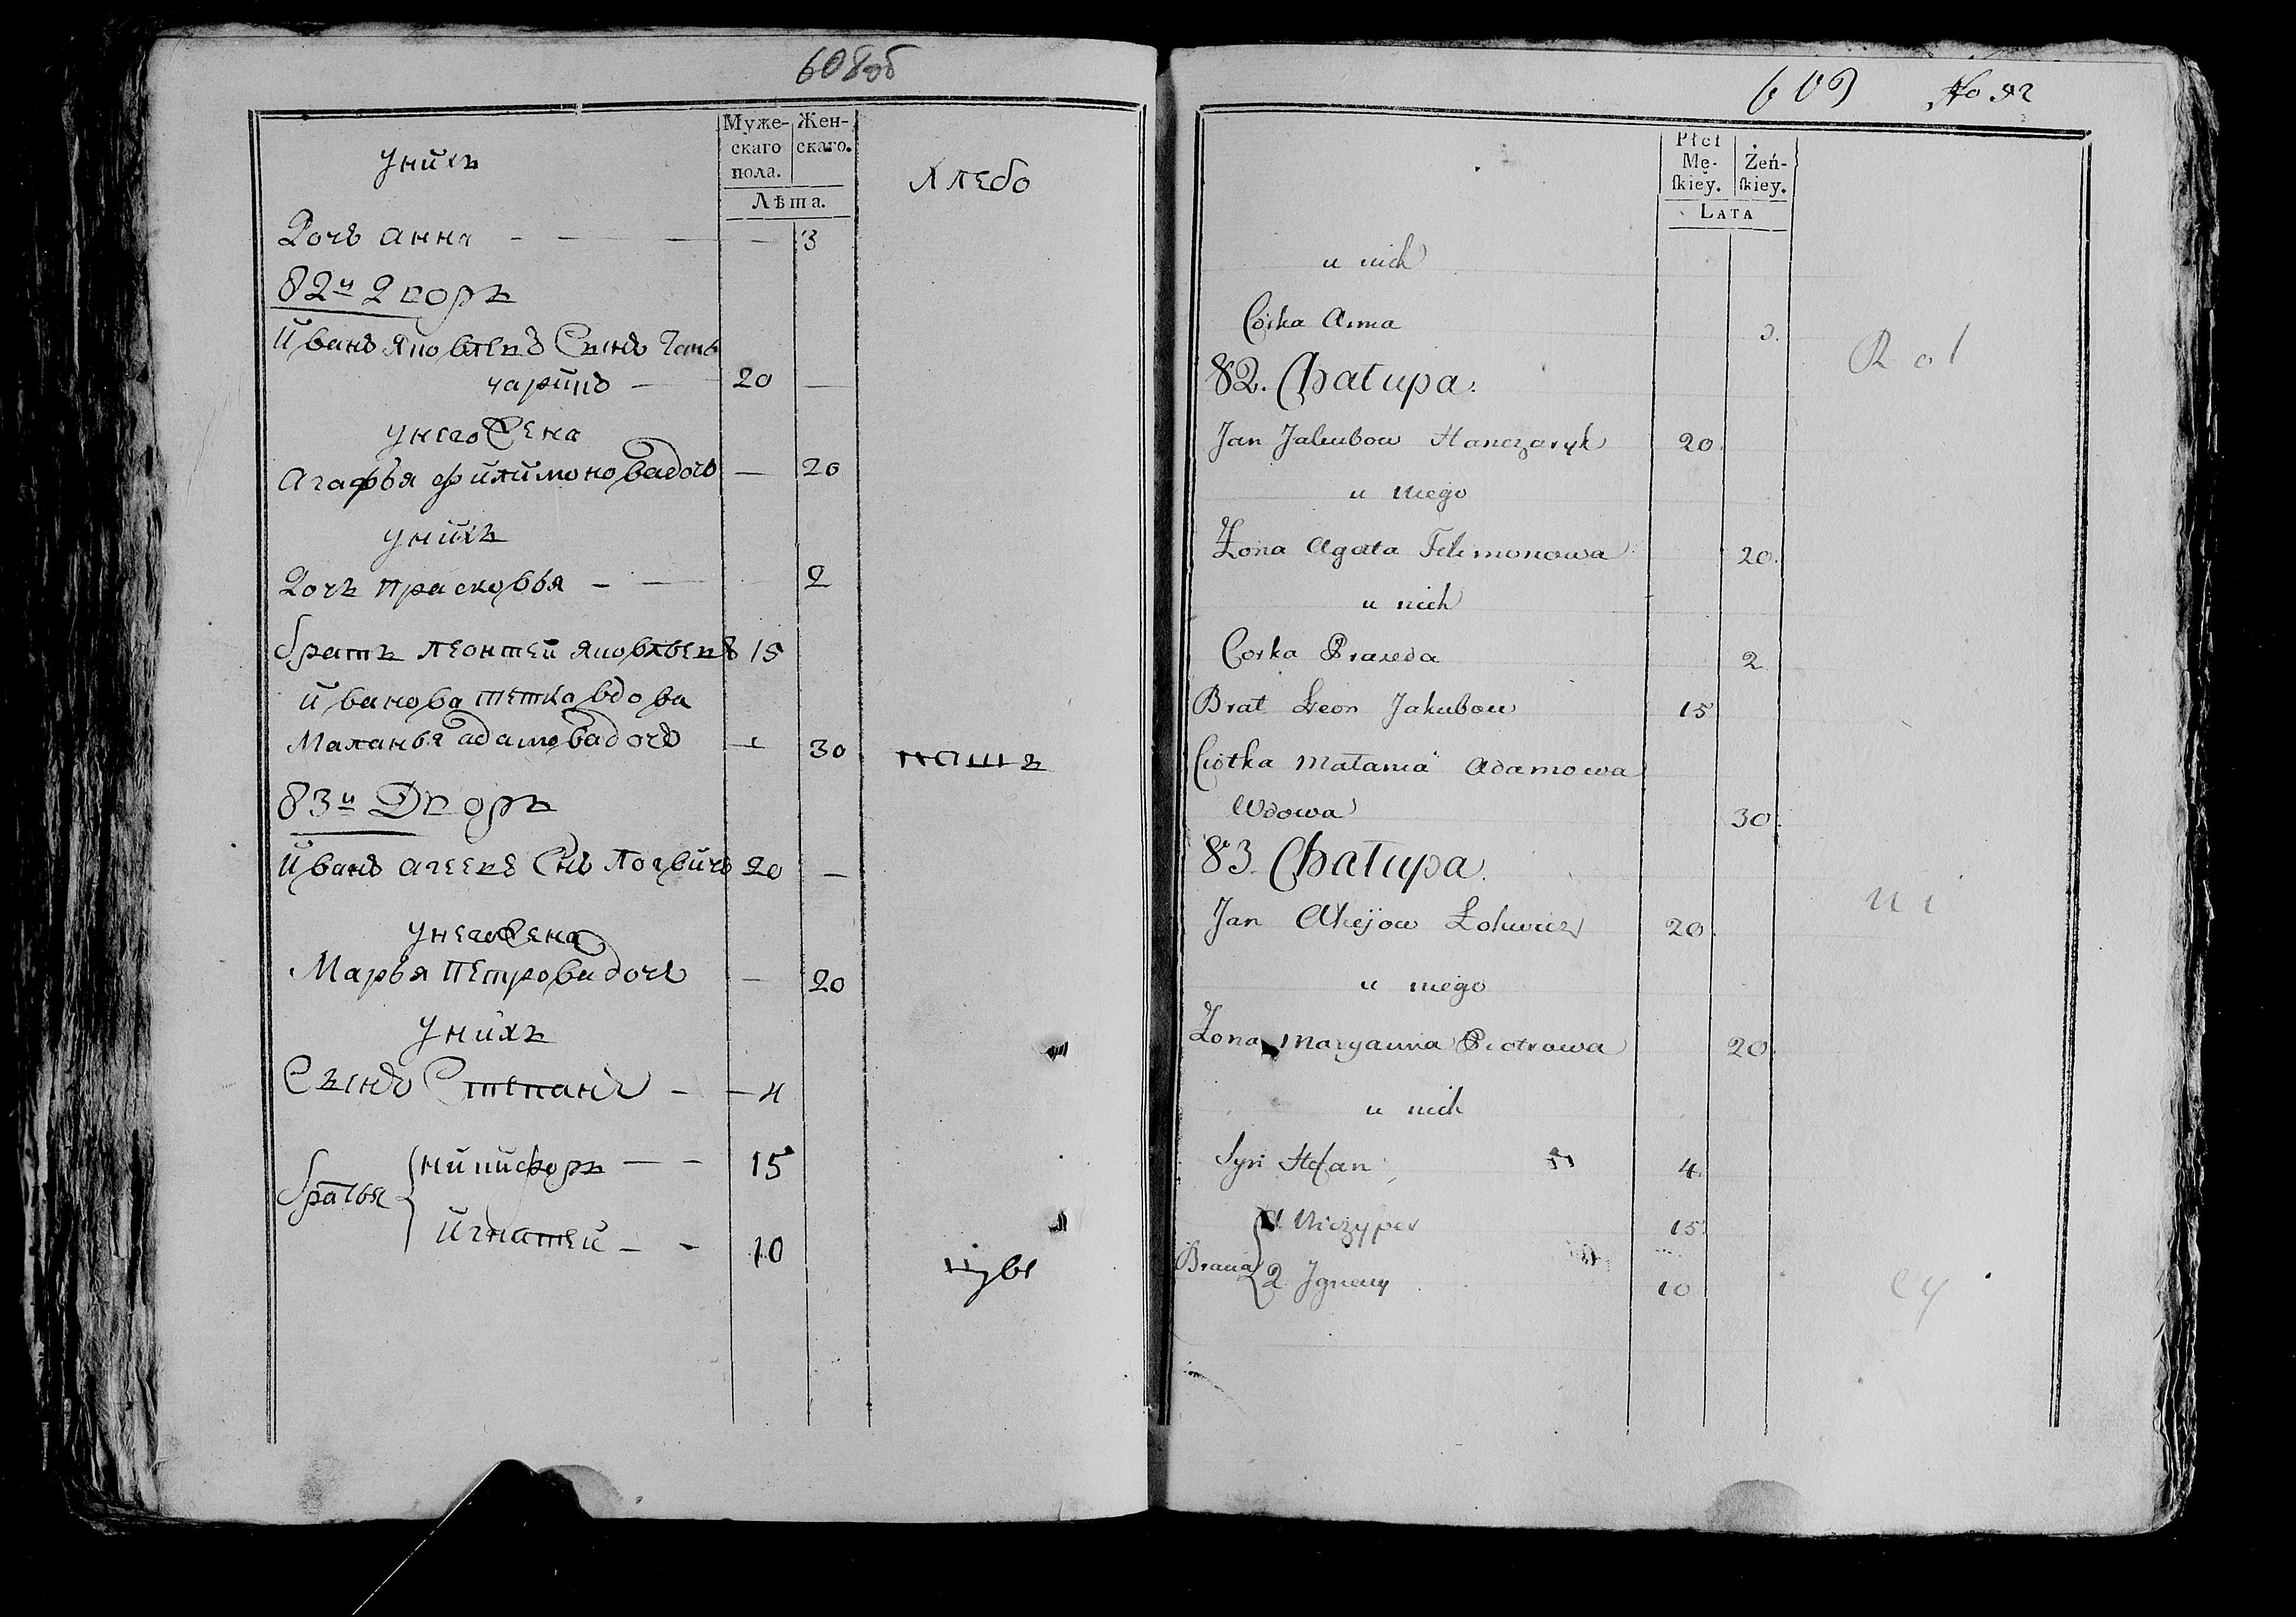 608об
Муже-
скаго
пола.
Жен-
скаго.
Лѣта.
унихъ
Хлебо
Дочъ анна — — — — 3
82й Дворъ
Иванъ Яковлевъ Сынъ Ганъ
чарикъ — 20 —
унего Жена
Агафья Филимонова дочъ — 20
унихъ
Дочъ Прасковья — — 2
братъ Леонтей Яковлевъ 15
Иванова тетка вдова
Маланья адамова дочъ — 30
пашъ
83й Дворъ
Иванъ Агеевъ Снъ Логвичъ 20 —
унего Жена
Марья Петрова дочъ — 20
унихъ
Сынъ Степанъ — — 4
братья { Никифоръ — — 15
Игнатей — — 10
цы
609 No 92
Płci
Mę-
ſkiey.
Żeń-
ſkiey.
LATA
u nich
Corka Anna 3.
Rol
82. Chałupa.
Jan Jakubow Hanczaryk 20.
u niego
Żona Agata Filimonowa 20.
u nich
Corka Praxeda 2
Brat Leon Jakubow 15
Ciotka Małania Adamowa
Wdowa 30.
83. Chałupa.
ni
Jan Akejow Łohwicz 20.
u niego
Żona Maryanna Piotrowa 20.
u nich
Syn Stefan 4.
Bracia { 1. Niczyper 15.
2 Jgnacy 10
cy